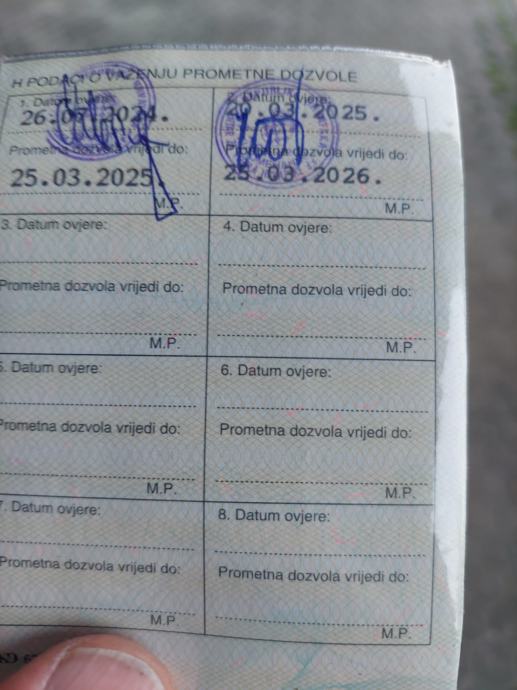 H PODACI O VAŽENJU PROMETNE DOZVOLE
1. Datum ovjere:
26.07.2024.
Prometna dozvola vrijedi do:
25.03.2025.
M.P.
2. Datum ovjere:
20.03.2025.
Prometna dozvola vrijedi do:
25.03.2026.
M.P.
3. Datum ovjere:
Prometna dozvola vrijedi do:
M.P.
4. Datum ovjere:
Prometna dozvola vrijedi do:
M.P.
5. Datum ovjere:
Prometna dozvola vrijedi do:
M.P.
6. Datum ovjere:
Prometna dozvola vrijedi do:
M.P.
7. Datum ovjere:
Prometna dozvola vrijedi do:
M.P.
8. Datum ovjere:
Prometna dozvola vrijedi do:
M.P.